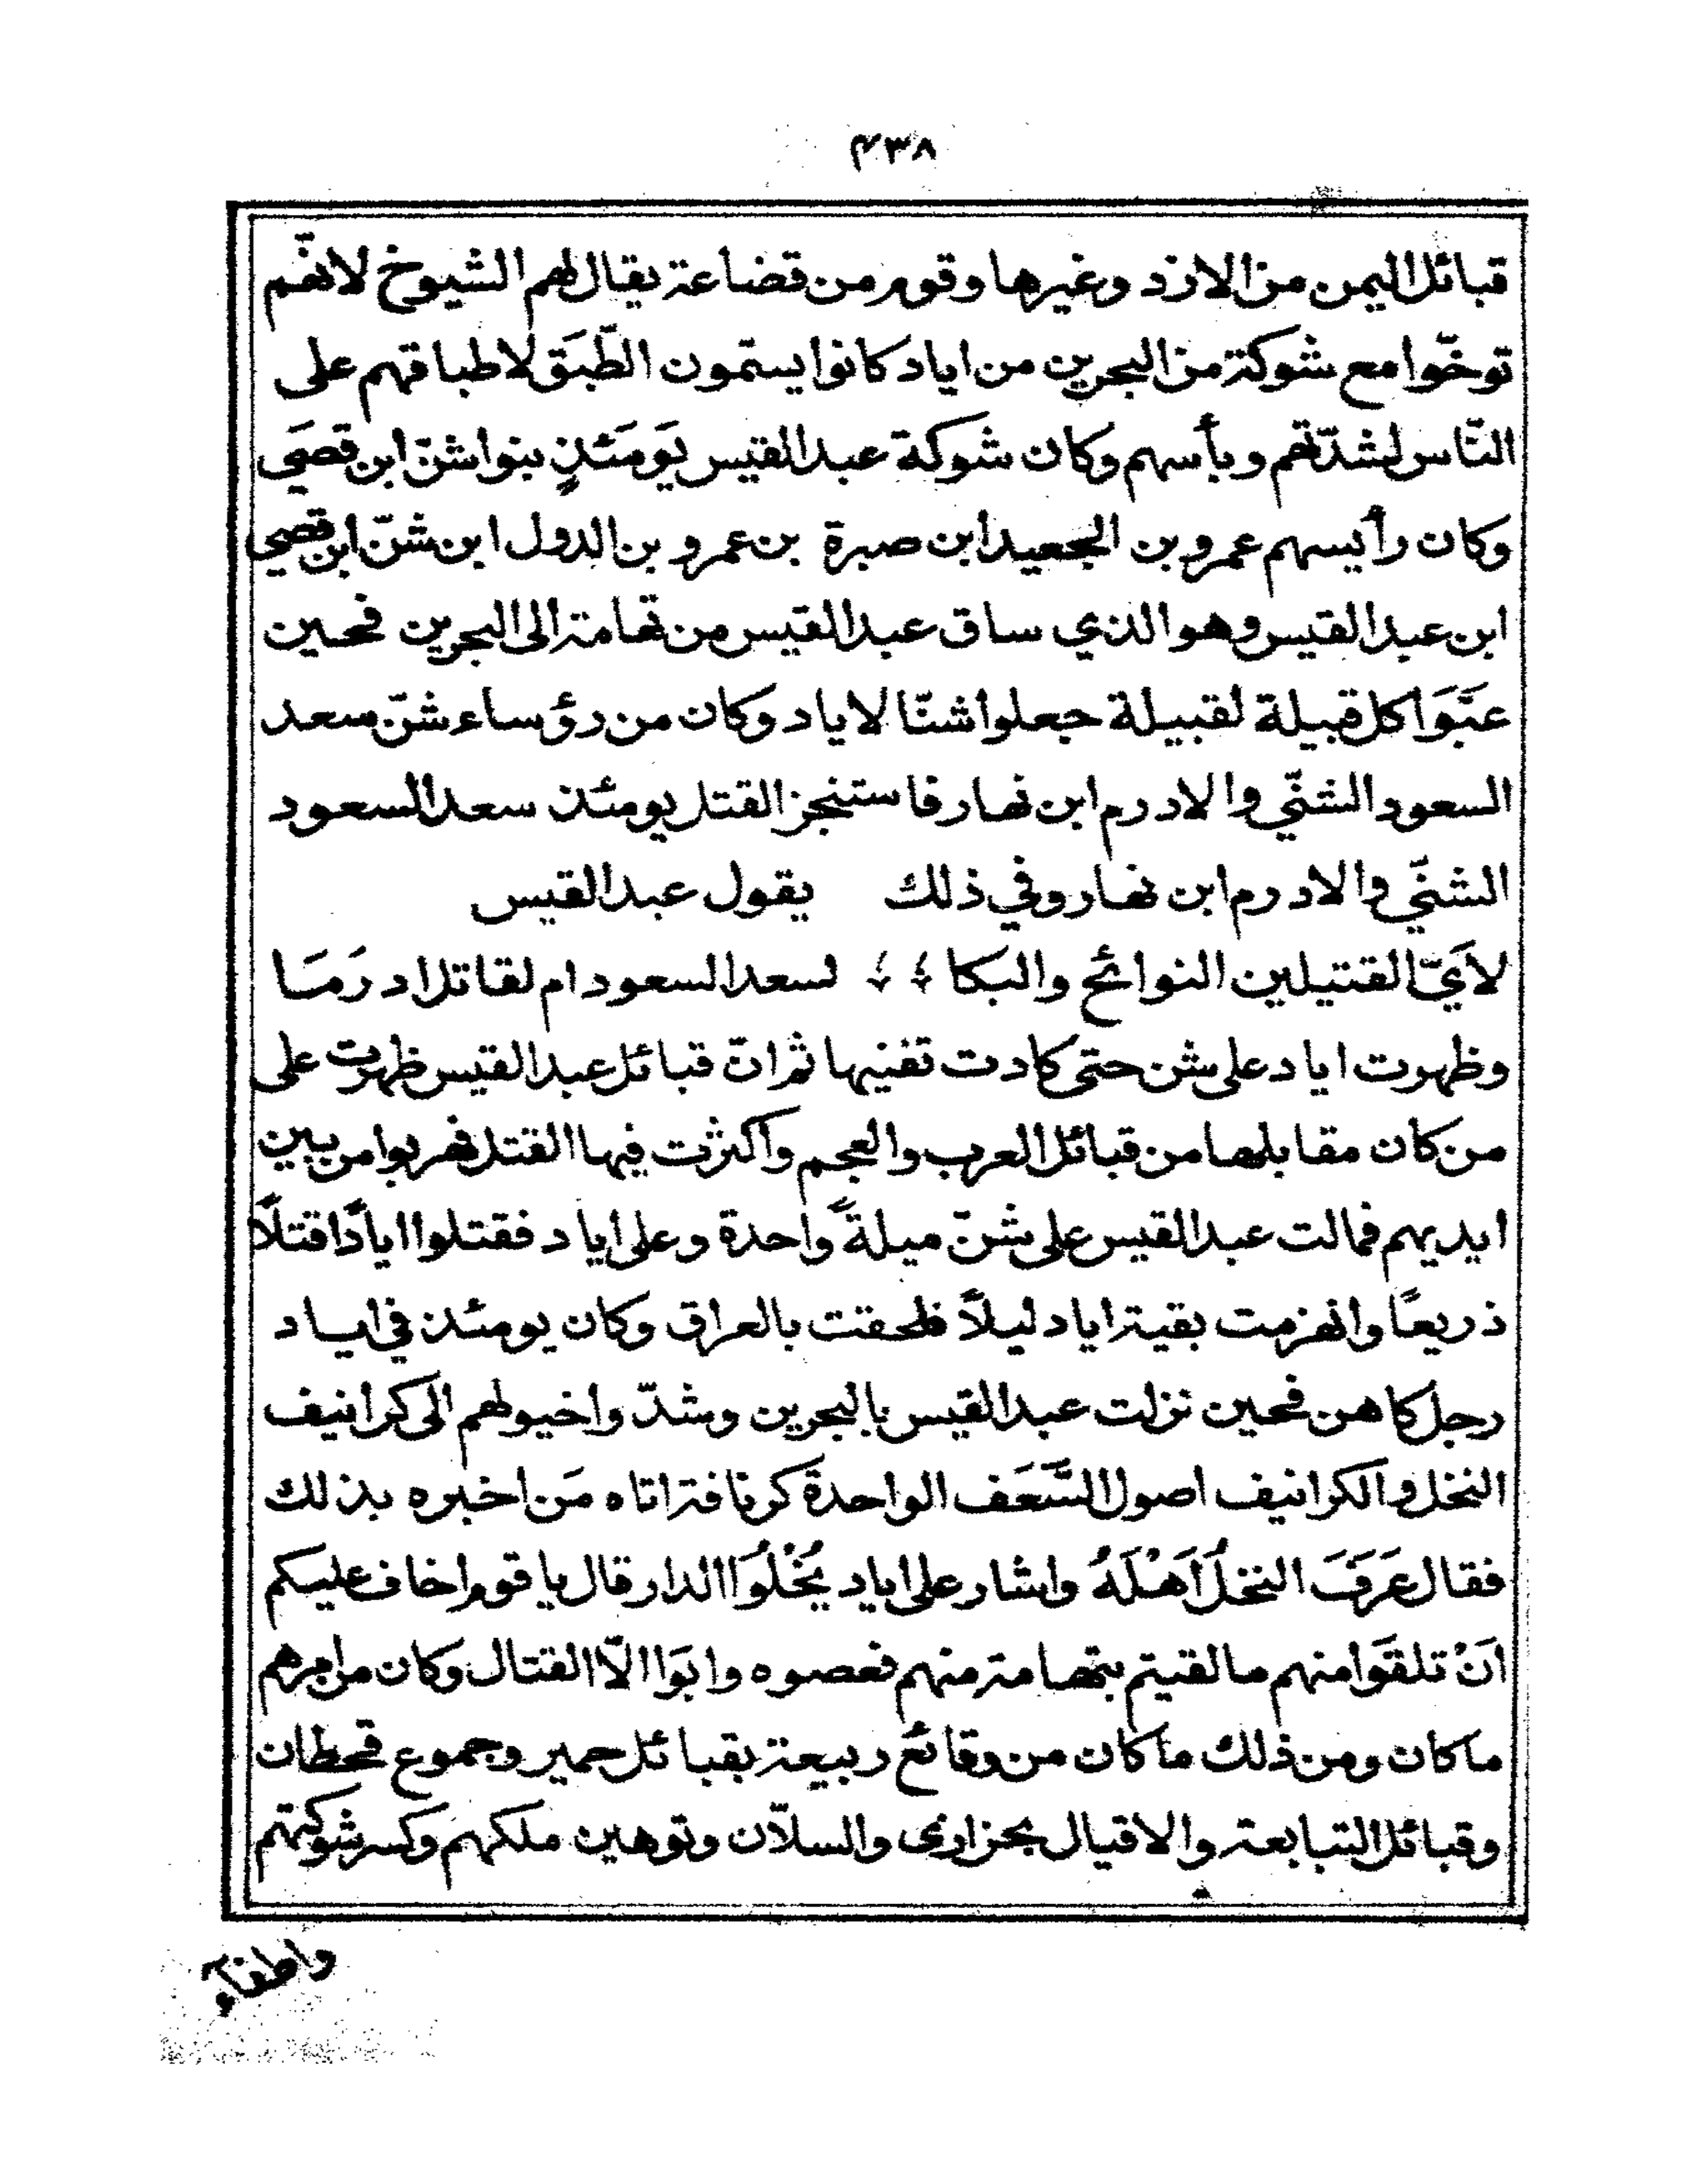 ٤٣٨
قبائل اليمن من الازد وغيرها وقوم من قضاعة يقال لهم الشيوخ لانهّم
توخّوا مع شوكة من البحرين من اياد كانوا يسمّون الطّبَق لاطباقهم على
النّاس لشدّتهم وبأسهم وكان شوكة عبد القيس يَومَئذٍ بنوا شنّ ابن قصَي
وكان رأيسهم عمرو بن الجعيد ابن صبرة بن عمرو بن الدول ابن شنّ ابن قصي
ابن عبد القيس وهو الذي ساق عبد القيس من تهامة الى البحرين فحين
عبَّوَا كل قبيلة لقبيلة جعلوا شنّا لاياد وكان من رؤساء شنّ سعد
السعود الشنّي والادرم ابن نهار فاستنجز القتل يومئذ سعد السعود
الشنّي والادرم ابن نهار وفي ذلك يقول عبد القيس
لأيّ القتيلين النوائح والبكا لسعد السعود ام لقاتل ادرَمَا
وظهرت اياد على شن حتى كادت تفنيها ثم انّ قبائل عبد القيس ظهرت على
من كان مقابلها من قبائل العرب والعجم واكثرت فيها القتل فهربوا من بين
ايديهم فمالت عبد القيس على شنّ ميلةً واحدة وعلى اياد فقتلوا اياداً قتلاً
ذريعاً وانهزمت بقية اياد ليلاً فلحقت بالعراق وكان يومئذ في اياد
رجل كاهن فحين نزلت عبد القيس بالبحرين وشدّوا خيولهم الى كرانيف
النخل والكرانيف اصول السَّعَف الواحدة كرنافة اتاه مَن اخبره بذلك
فقال عَرَفَ النخلُ اَهْلَهُ واشار على اياد يُخْلُوَا الدار قال يا قوم اخاف عليكم
اَنْ تلقَوا منهم ما لقيتم بتهامة منهم فعصوه وابَوا الاّ القتال وكان من امرهم
ما كان ومن ذلك ما كان من وقائع ربيعة بقبائل حمير وجموع قحطان
وقبائل التبابعة والاقيال بخزازى والسلاّن وتوهين ملكهم وكسر شوكتهم
واطفآء